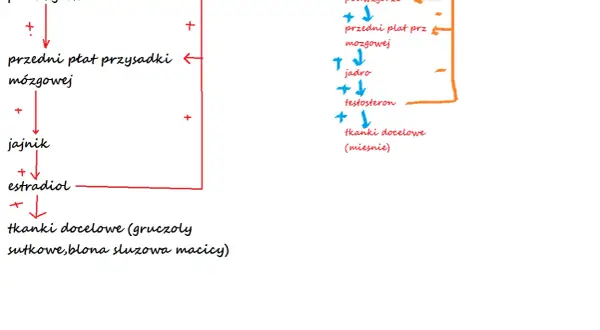 przedni płat przysadki
mózgowej
jajnik
estradiol
tkanki docelowe (gruczoly
sutkowe,blona sluzowa macicy)
przedni plat prz
mozgowej
jadro
testosteron
tkanki docelowe
(miesnie)